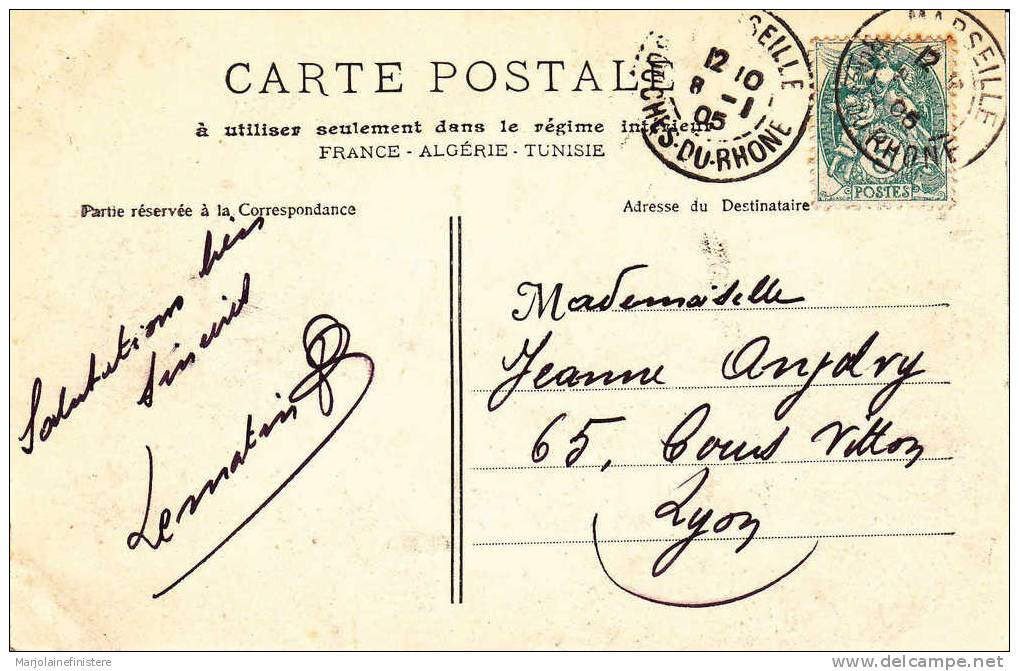 CARTE POSTALE
à utiliser seulement dans le régime intérieur
FRANCE - ALGÉRIE - TUNISIE
MARSEILLE
12 10
8 - 1
05
BOUCHES-DU-RHONE
MARSEILLE
12
05
RHONE
POSTES
Partie réservée à la Correspondance
Adresse du Destinataire
Salutations bien
Sincères
Lematin
Mademoiselle
Jeanne
65, Cours Vitton
Lyon
Marjolainefinistere
delcampe.net